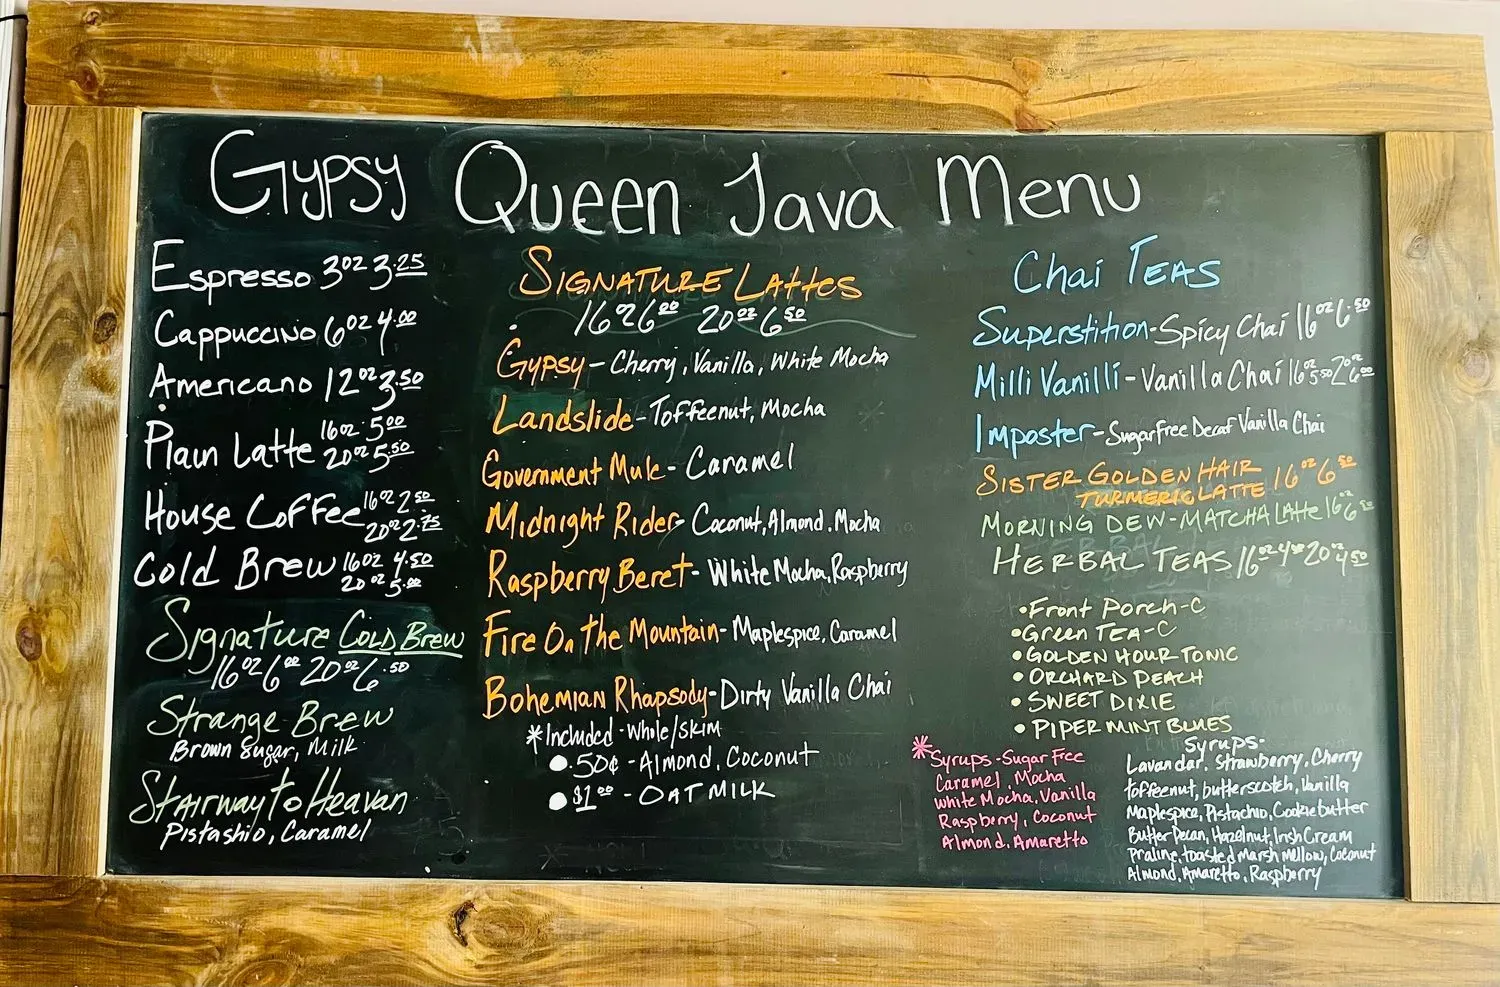 Gypsy Queen Java Menu
Espresso 3oz 3.25
Cappuccino 6oz 4.00
Americano 12oz 3.50
Plain Latte 16oz 5.00
20oz 5.50
House Coffee 16oz 2.50
20oz 2.75
Cold Brew 16oz 4.50
20oz 5.00
Signature Cold Brew
16oz 6.00 20oz 6.50
Strange Brew
Brown Sugar, Milk
Stairway to Heavan
Pistashio, Caramel
Signature Lattes
16oz 6.00 20oz 6.50
Gypsy - Cherry, Vanilla, White Mocha
Landslide - Toffeenut, Mocha
Government Mule - Caramel
Midnight Rider - Coconut, Almond, Mocha
Raspberry Beret - White Mocha, Raspberry
Fire On The Mountain - Maplespice, Caramel
Bohemian Rhapsody - Dirty Vanilla Chai
*Included - Whole/Skim
• .50¢ - Almond, Coconut
• $1.00 - OAT MILK
Chai TEAS
Superstition - Spicy Chai 16oz 6.50
Milli Vanilli - Vanilla Chai 16oz 5.50 20oz 6.00
Imposter - Sugar Free Decaf Vanilla Chai
SISTER GOLDEN HAIR
TURMERIC LATTE 16oz 6.50
MORNING DEW - MATCHA LATTE 16oz 6.50
HERBAL TEAS 16oz 4.00 20oz 4.50
• Front Porch - C
• Green TEA - C
• GOLDEN HOUR TONIC
• ORCHARD PEACH
• SWEET DIXIE
• PIPERMINT BLUES
*Syrups - Sugar Free
Caramel, Mocha
White Mocha, Vanilla
Raspberry, Coconut
Almond, Amaretto
Syrups -
Lavandar, Strawberry, Cherry
toffeenut, butterscotch, Vanilla
Maplespice, Pistachio, Cookie butter
Butter Pecan, Hazelnut, Irish Cream
Praline, toasted marshmellow, Coconut
Almond, Amaretto, Raspberry